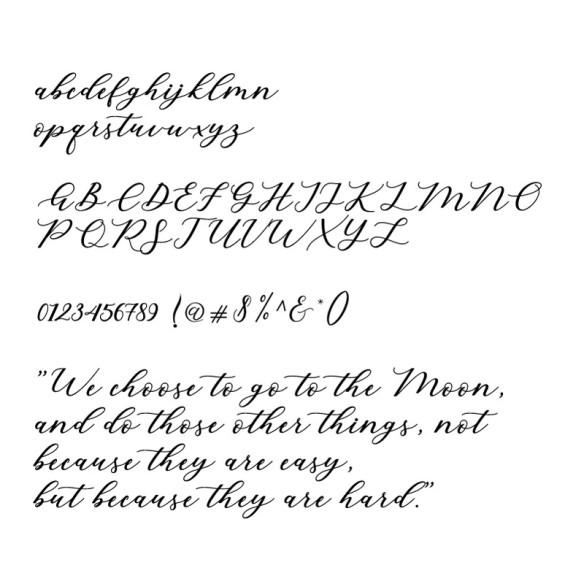 abcdefghijklmn
opqrstuvwxyz
ABCDEFGHIJKLMNO
PQRSTUVWXYZ
0123456789 !@#$%^&*()
"We choose to go to the Moon,
and do those other things, not
because they are easy,
but because they are hard."